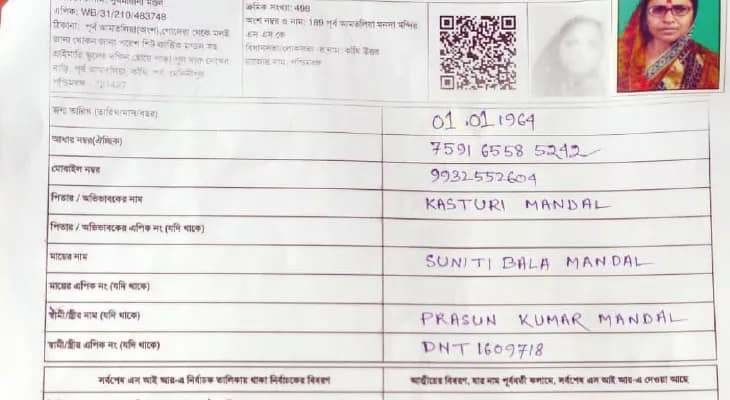 এপিক: WB/31/210/483748
ঠিকানা: পূর্ব আমতলিয়া(অংশ),গোলেরা থেকে মলই
পশ্চিমবঙ্গ
ক্রমিক সংখ্যা: 496
অংশ নম্বর ও নাম: 189 পূর্ব আমতলিয়া মনসা মন্দির
এস এস কে
কাঁথি উত্তর
রাজ্যের নাম: পশ্চিমবঙ্গ
জন্ম তারিখ (তারিখ/মাস/বছর) 01.01.1964
আধার নম্বর(ঐচ্ছিক) 7591 6558 5242
মোবাইল নম্বর 9932552604
পিতার / অভিভাবকের নাম KASTURI MANDAL
পিতার / অভিভাবকের এপিক নং (যদি থাকে)
মায়ের নাম SUNITI BALA MANDAL
মায়ের এপিক নং (যদি থাকে)
স্বামী/স্ত্রীর নাম (যদি থাকে) PRASUN KUMAR MANDAL
স্বামী/স্ত্রীর এপিক নং (যদি থাকে) DNT 1609718
সর্বশেষ এস আই আর-এ নির্বাচক তালিকায় থাকা নির্বাচকের বিবরণ
আত্মীয়ের বিবরণ, যার নাম পূর্ববর্তী কলামে, সর্বশেষ এস আই আর-এ দেওয়া আছে